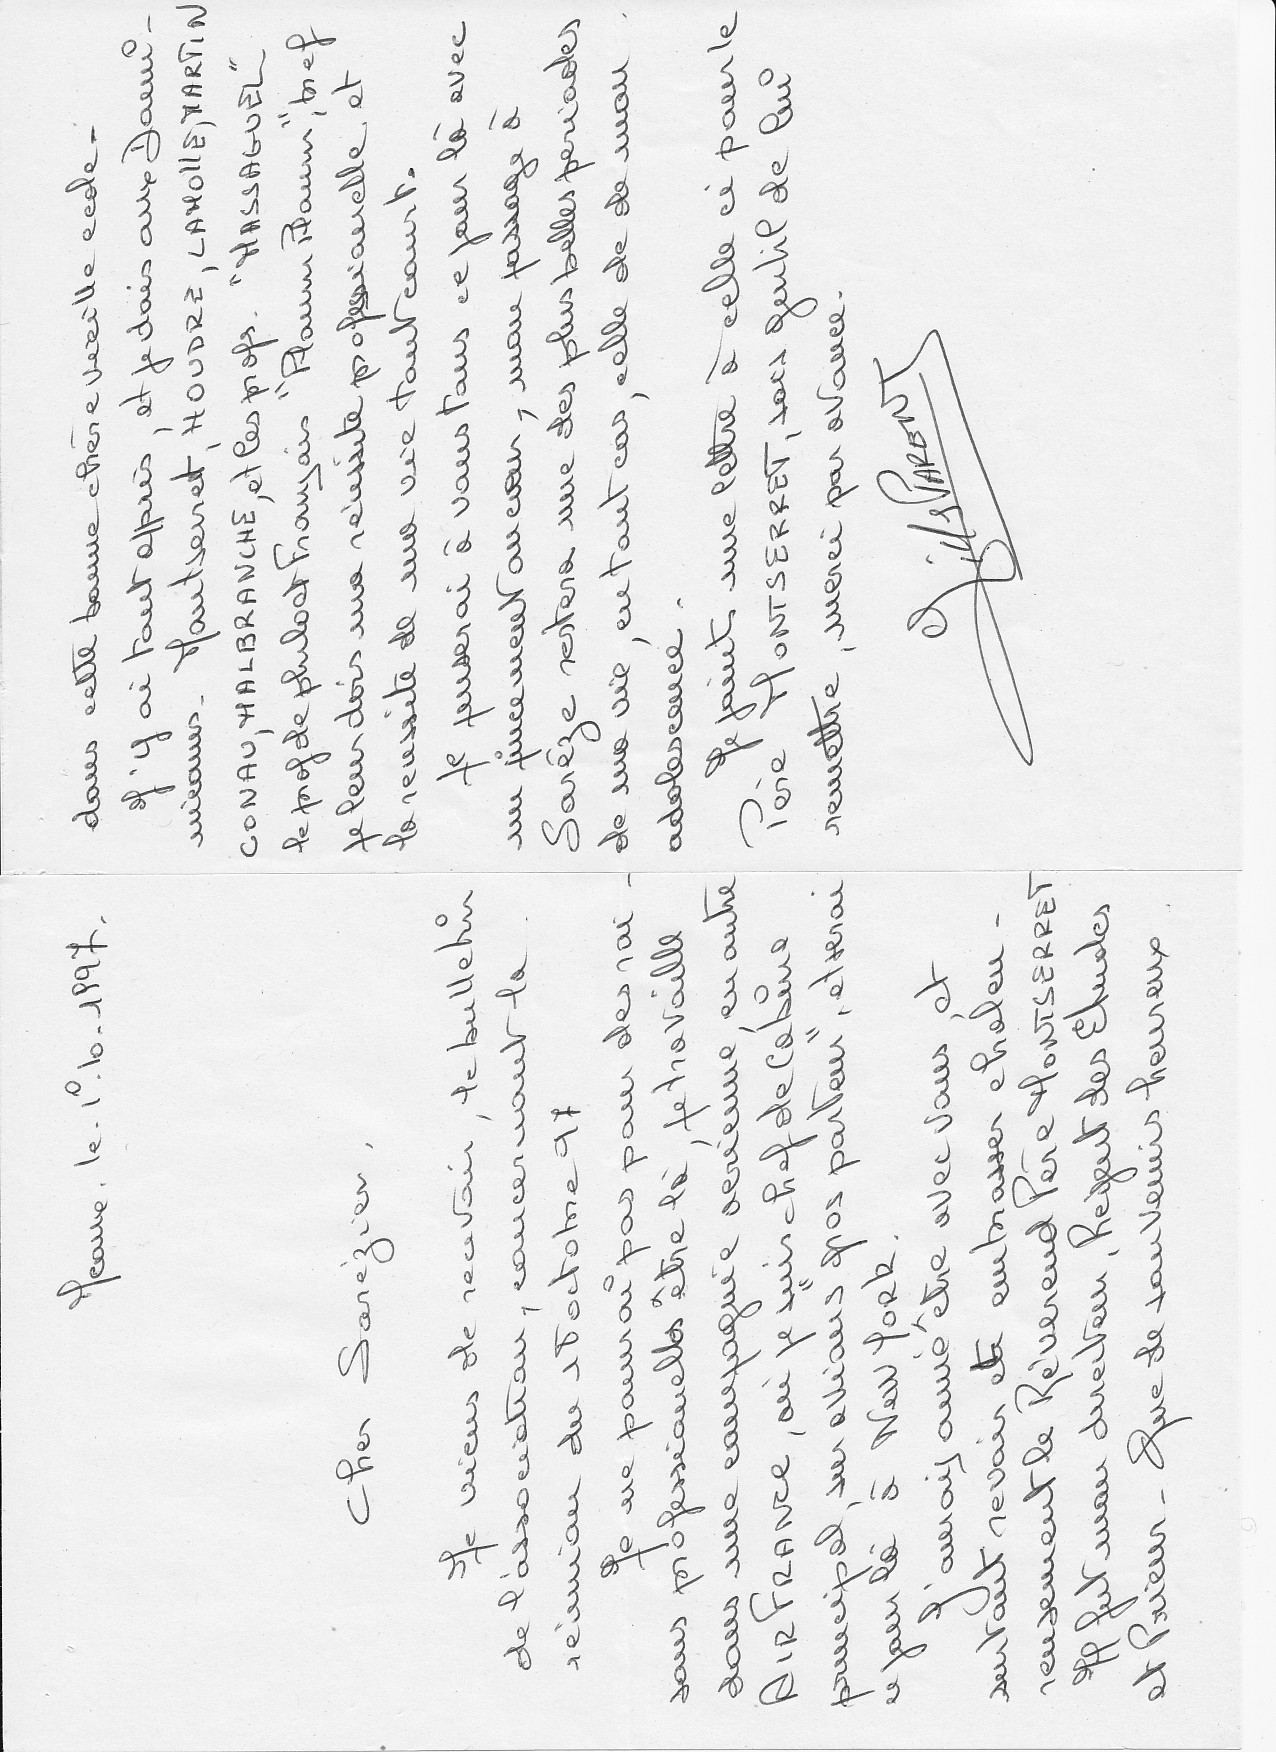 le 1º.10.1997.
Cher Sorézien,
Je viens de recevoir, le bulletin
de l'association, concernant la
réunion du 11 octobre 97
Je ne pourrai pas pour des rai-
sons professionnelles être là, je travaille
dans une compagnie aérienne en autre
AIR FRANCE, où je suis chef de Cabine
principal, sur avions "gros porteur", et serai
ce jour là à New York.
J'aurais aimé être avec vous, et
surtout revoir et embrasser chaleu-
reusement le Révérend Père MONTSERRET
Il fut mon directeur, Régent des Etudes
et Prieur - Que de souvenirs heureux
dans cette bonne chère vieille école -
J'y ai tout appris, et je dois aux Domi-
nicains - Montserret, HOUDRE, LAMOLLE, MARTIN
CONAU, MALBRANCHE, et les profs. "MASSAGUEL"
le prof de philo et Français "Moum Moum", bref
je leur dois ma réussite professionnelle, et
la réussite de ma vie tout court.
Je penserai à vous tous ce jour là avec
un pincement au cœur, mon passage à
Sorèze restera une des plus belles periodes
de ma vie, en tout cas, celle de mon
adolescence.
Je joints une lettre à celle ci pour le
Père MONTSERRET, soit gentil de lui
remettre, merci par avance.
Gilles PARENT